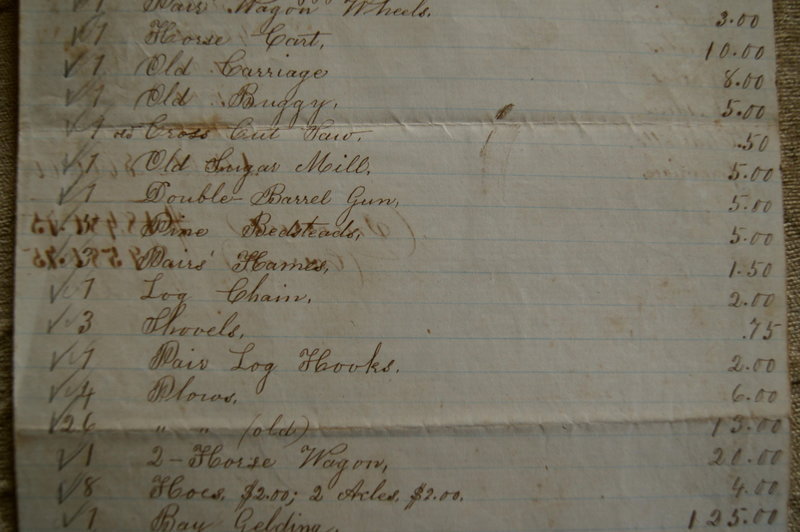 1 Pair Wagon Wheels. 3.00
√ 1 Horse Cart, 10.00
√ 1 Old Carriage 8.00
√ 1 Old Buggy, 5.00
√ 1 old Cross Cut Saw, .50
√ 1 Old Sugar Mill, 5.00
√ 1 Double-Barrel Gun, 5.00
Pine Bedsteads, 5.00
3 Pairs' Hames, 1.50
√ 1 Log Chain, 2.00
√ 3 Shovels, .75
√ 1 Pair Log Hooks. 2.00
√ 4 Plows, 6.00
√ 26 " " (old) 13.00
√ 1 2-Horse Wagon, 20.00
√ 8 Hoes. $2.00; 2 Axles. $2.00. 4.00
√ 1 Bay Gelding. 125.00